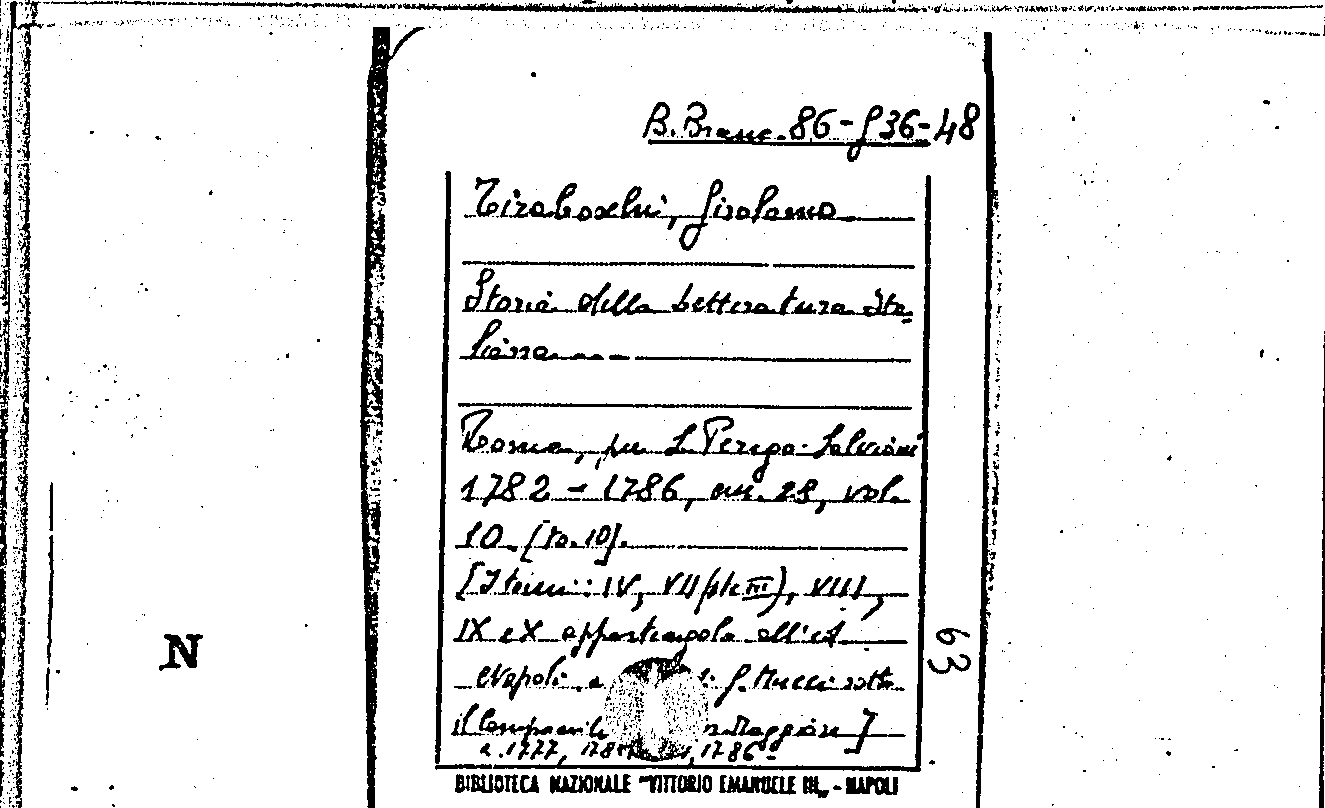 B. Branc. 86-J36-48
Tiraboschi, Girolamo
Storia della letteratura Ita=
liana
Roma, per L. Perego-Salvioni
1782-1786, cm. 28, vol.
10. [to. 10].
[I tomi: IV, VII (pte III), VIII,
IX e X appartengolo all'ed.
Napoli, a G. Mucci sotto
il Campanile Maggiore]
a. 1777, 1786=
BIBLIOTECA NAZIONALE "VITTORIO EMANUELE III" - NAPOLI
N
63